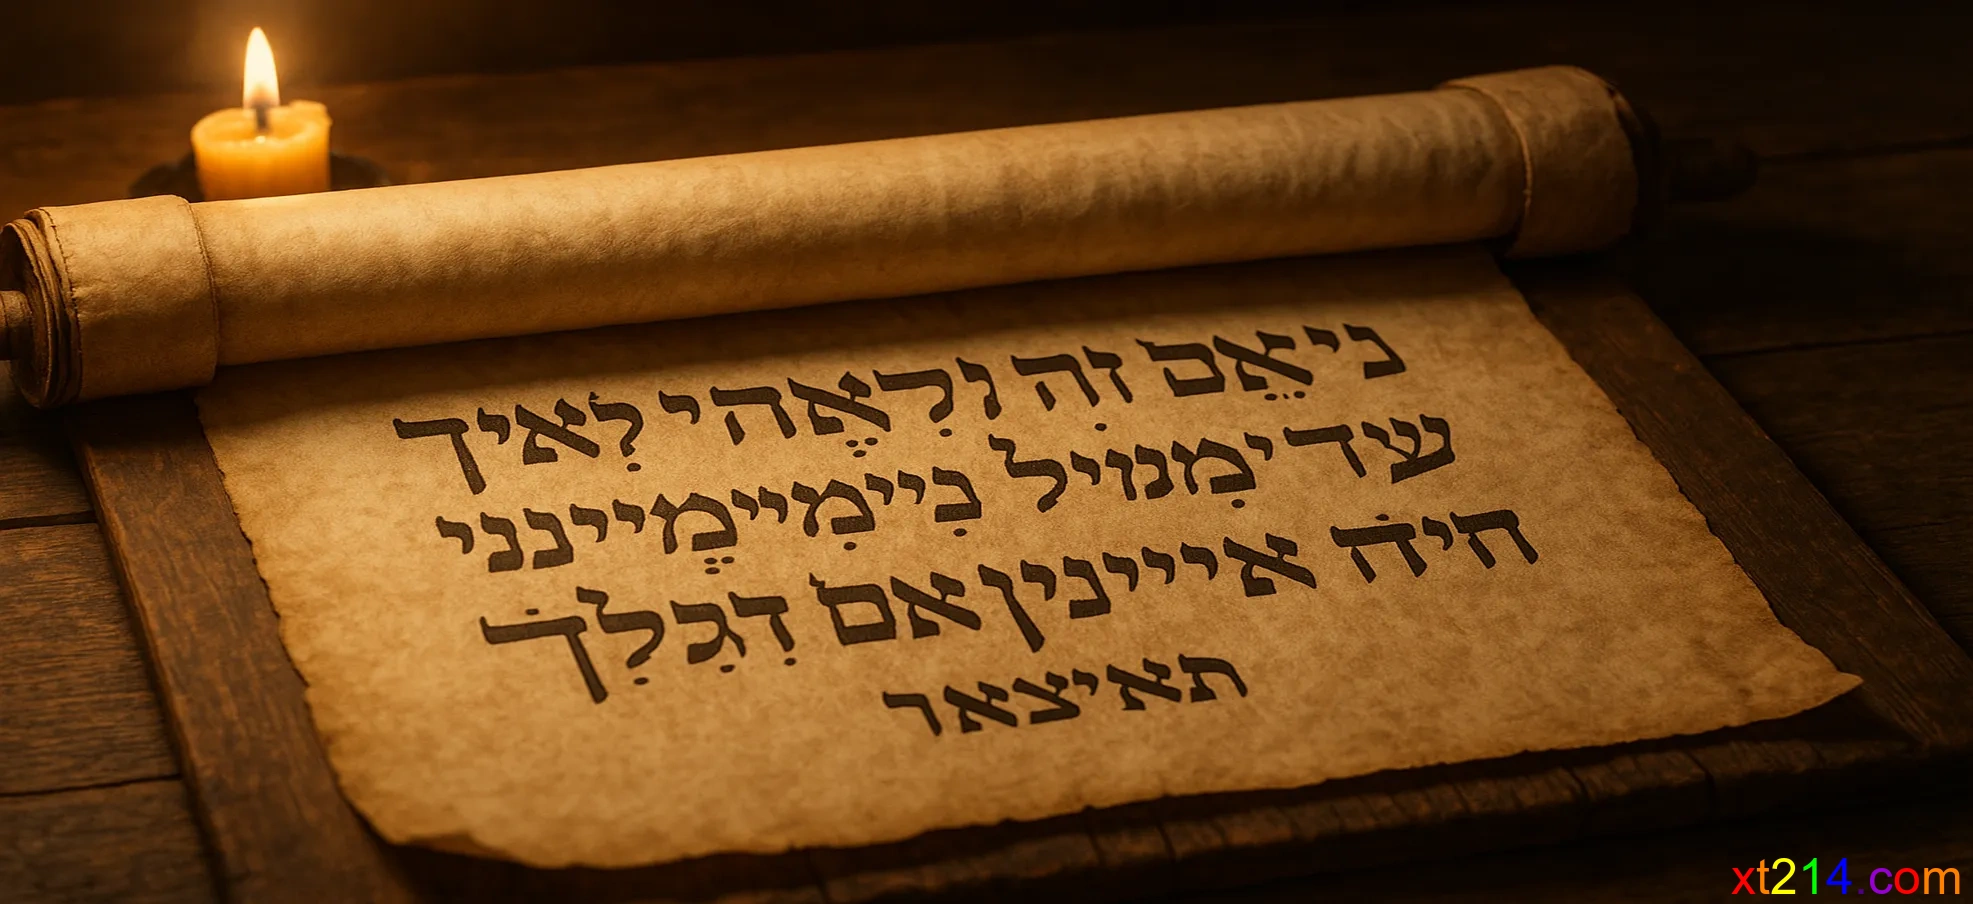 ני אֵם זִה וִלִאֶהי לִאיך
עד ימִנויל נִיימִיימֶיינני
חיׄה איייניןאם דִגִלִךׄ
תאיצאר
xt214.com